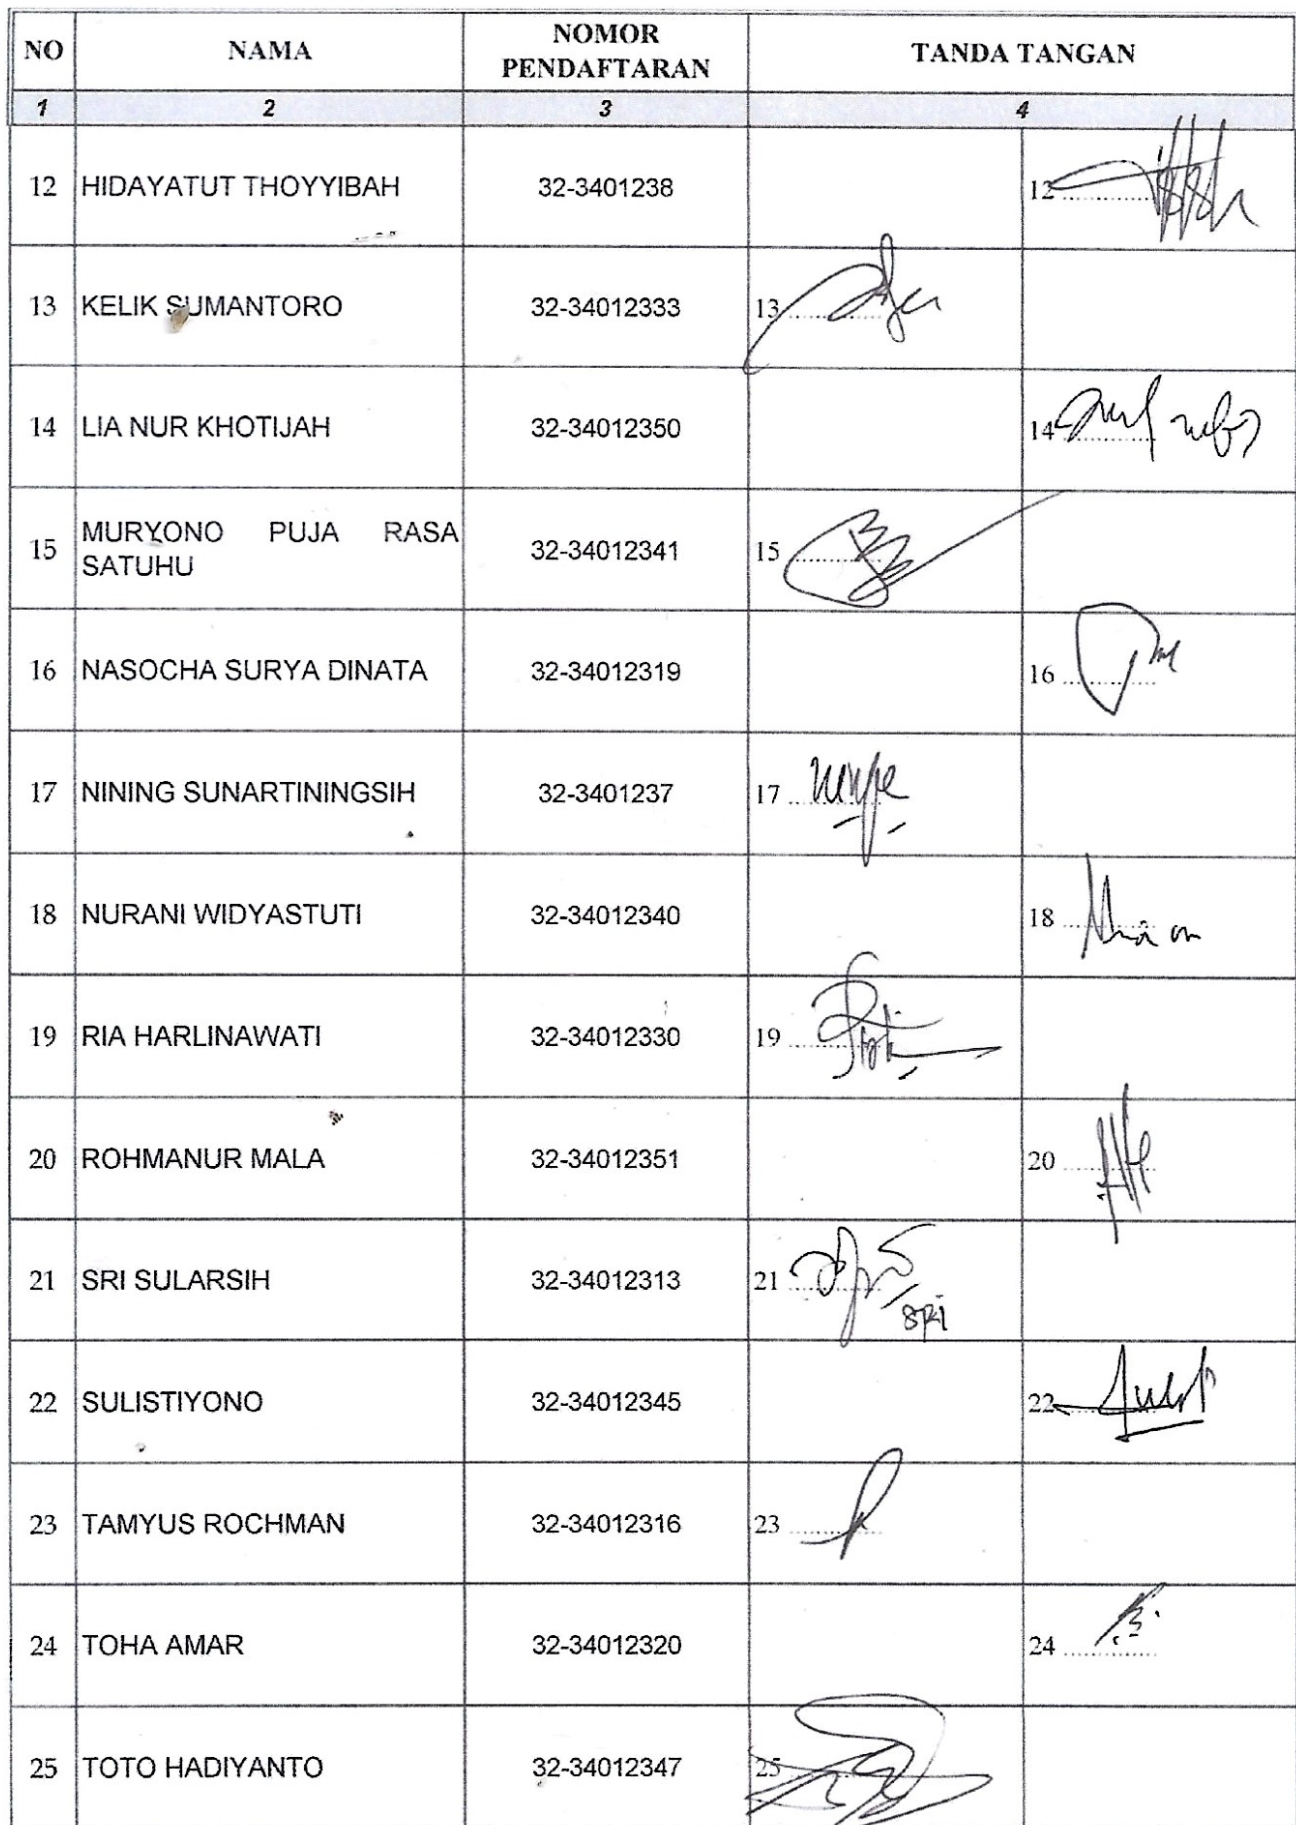 NO NAMA NOMOR PENDAFTARAN TANDA TANGAN
1 2 3 4
12 HIDAYATUT THOYYIBAH 32-3401238 12
13 KELIK SUMANTORO 32-34012333 13
14 LIA NUR KHOTIJAH 32-34012350 14
15 MURYONO PUJA RASA SATUHU 32-34012341 15
16 NASOCHA SURYA DINATA 32-34012319 16
17 NINING SUNARTININGSIH 32-3401237 17
18 NURANI WIDYASTUTI 32-34012340 18
19 RIA HARLINAWATI 32-34012330 19
20 ROHMANUR MALA 32-34012351 20
21 SRI SULARSIH 32-34012313 21 SRI
22 SULISTIYONO 32-34012345 22
23 TAMYUS ROCHMAN 32-34012316 23
24 TOHA AMAR 32-34012320 24
25 TOTO HADIYANTO 32-34012347 25